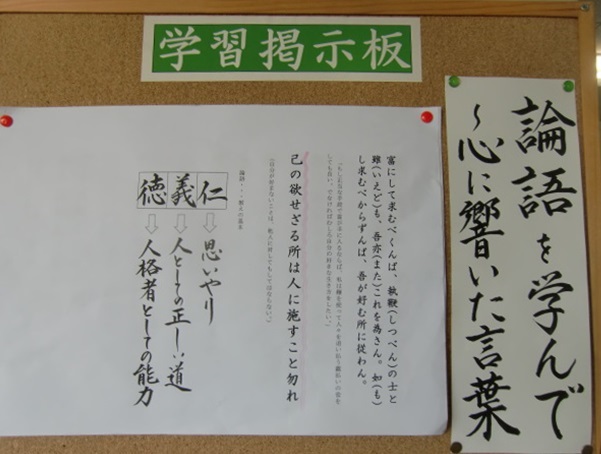 学習掲示板
論語を学んで
～心に響いた言葉
富にして求むべくんば、執鞭(しつべん)の士と
雖(いえど)も、吾亦(また)これを為さん。如(も)
し求むべからずんば、吾が好む所に従わん。
己の欲せざる所は人に施すこと勿れ
仁 ⇨ 思いやり
義 ⇨ 人としての正しい道
徳 ⇨ 人格者としての能力